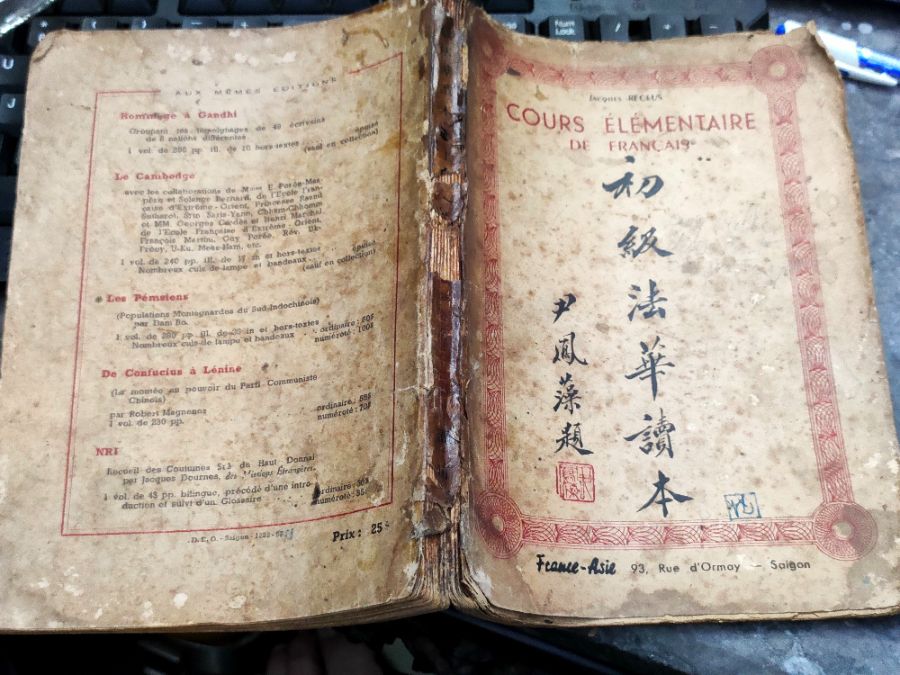 AUX MÊMES ÉDITIONS
Hommage à Gandhi
Groupant les témoignages de 48 écrivains
de 8 nations différentes
1 vol. de 200 pp. ill. de 10 hors-textes . . épuisé
(sauf en collection)
Le Cambodge
avec les collaborations de Mmes E Porée-Mas-
péro et Solange Bernard, de l'Ecole Fran-
çaise d'Extrême-Orient, Princesse
et MM. Georges Cœdès et Henri Marchal
de l'Ecole Française d'Extrême-Orient,
François Martini, Guy Porée, Rév.
etc.
1 vol. de 240 pp. ill. de 17 in et hors-textes . épuisé
Nombreux culs-de-lampe et bandeaux . . (sauf en collection)
Les Pémsiens
(Populations Montagnardes du Sud-Indochinois)
par Dam Bo.
1 vol. de pp. ill. de 33 in et hors-textes . ordinaire :
Nombreux culs-de-lampe et bandeaux . numéroté : 100$
De Confucius à Lénine
(La montée au pouvoir du Parti Communiste
Chinois)
par Robert Magnenoz ordinaire :
1 vol. de 230 pp. numéroté :
NRI
Recueil des Coutumes Srê du Haut Donnaï
par Jacques Dournes, des Missions Étrangères.
1 vol. de 43 pp. bilingue, précédé d'une intro ordinaire :
duction et suivi d'un Glossaire numéroté :
Prix : 25
Jacques RECLUS
COURS ÉLÉMENTAIRE
DE FRANÇAIS
初級法華讀本
尹鳳藻題
France-Asie 93, Rue d'Ormay — Saigon